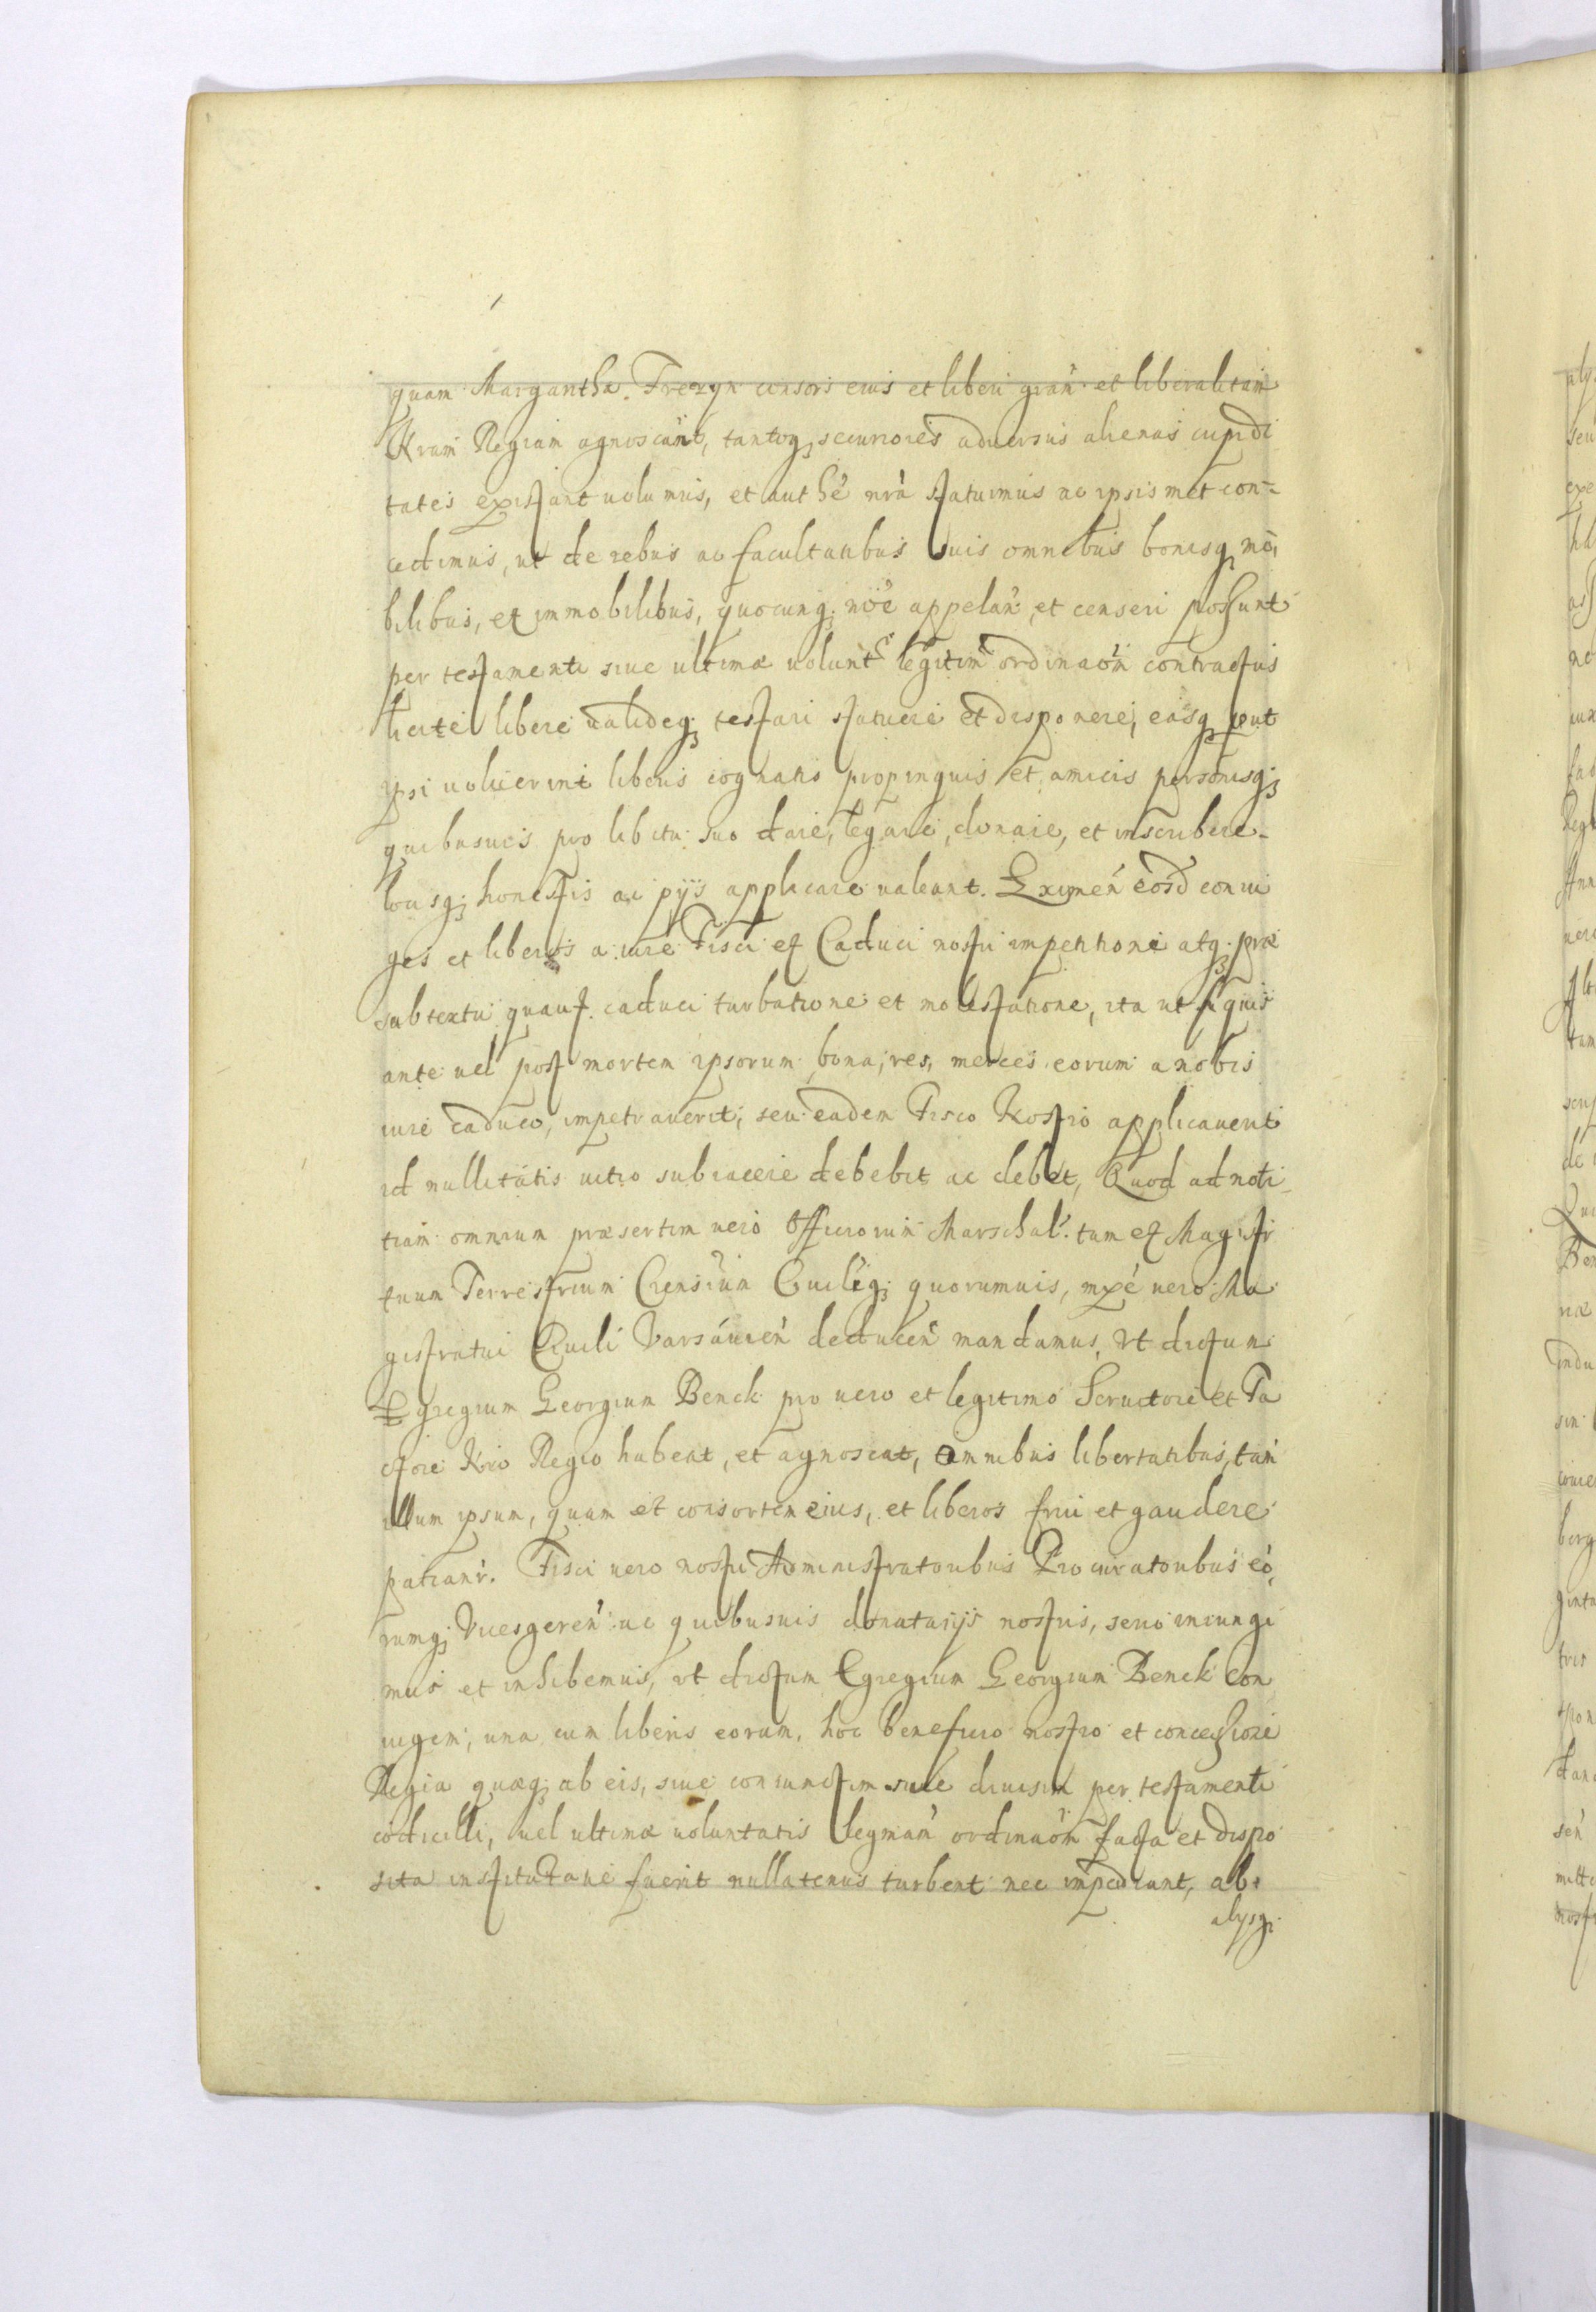 quam Margaritha Frezyn consors eius et liberi gratn̄ et liberalitatm̄
Nram Regiam agnoscant, tantoq; securiores aduersus alienas cupidi
tates existant uolumus, et authē nrā statuimus ac ipsismet con-
cedimus, ut de rebus ac facultatibus suis omnibus bonisq; mo,
bilibus, et immobilibus, quocunq; noē appelań et censeri possunt
per testamenti siue ultimæ uolunt legitim ordinaōm contractus
licite libere ualideq; testari statuere et disponere, easq; put
ipsi uoluerint liberis cognatis propinquis et amicis personisq;
quibusuis pro libitu suo dare, legare, donare, et inscribere
locisq; honestis ac piis applicare ualeant. Eximeń eosd coniu
ges et liberos a iure Fisci et Caduci nostri impetitione atq; præ
subtextu quauis caduci turbatione et molestatione, ita ut si quis
ante uel post mortem ipsorum bona, res, merces eorum a nobis
iure caduco, impetrauerit, seu eadem Fisco Nostro applicauerit
id nullitatis uitio subiacere debebit ac debet, Quod ad noti
tiam omnium præsertim uero Officiorum Marschal. tum et Magistr
tuum Terrestrium Crensium Ciuileq; quorumuis, mxe uero Ma
gistratui Ciuili Varsauień deduceń mandamus, ut dictum
Egregium Georgium Benck pro uero et legitimo Seruitore et Fa
ctore Nro Regio habeat, et agnoscat, omnibus libertatibus, tam
illum ipsum, quam et consortem eius, et liberos frui et gaudere
patianr. Fisci uero nostri Administratoribus Procuratoribus eo,
rumq; Vicesgereń ac quibusuis donatarijs nostris, serio iniungi
mus et inhibemus, ut dictum Egregium Georgium Benck Con
iugem, una cum liberis eorum, hoc beneficio nostro et concessione
Regia quæq; ab eis, siue coniunctim siue diuisim per testamenti
codicilli, uel ultimæ uoluntatis legmam ordinaōm facta et dispo
sita institutaue fuerit nullatenus turbent nec impediant, ab
alijsq;